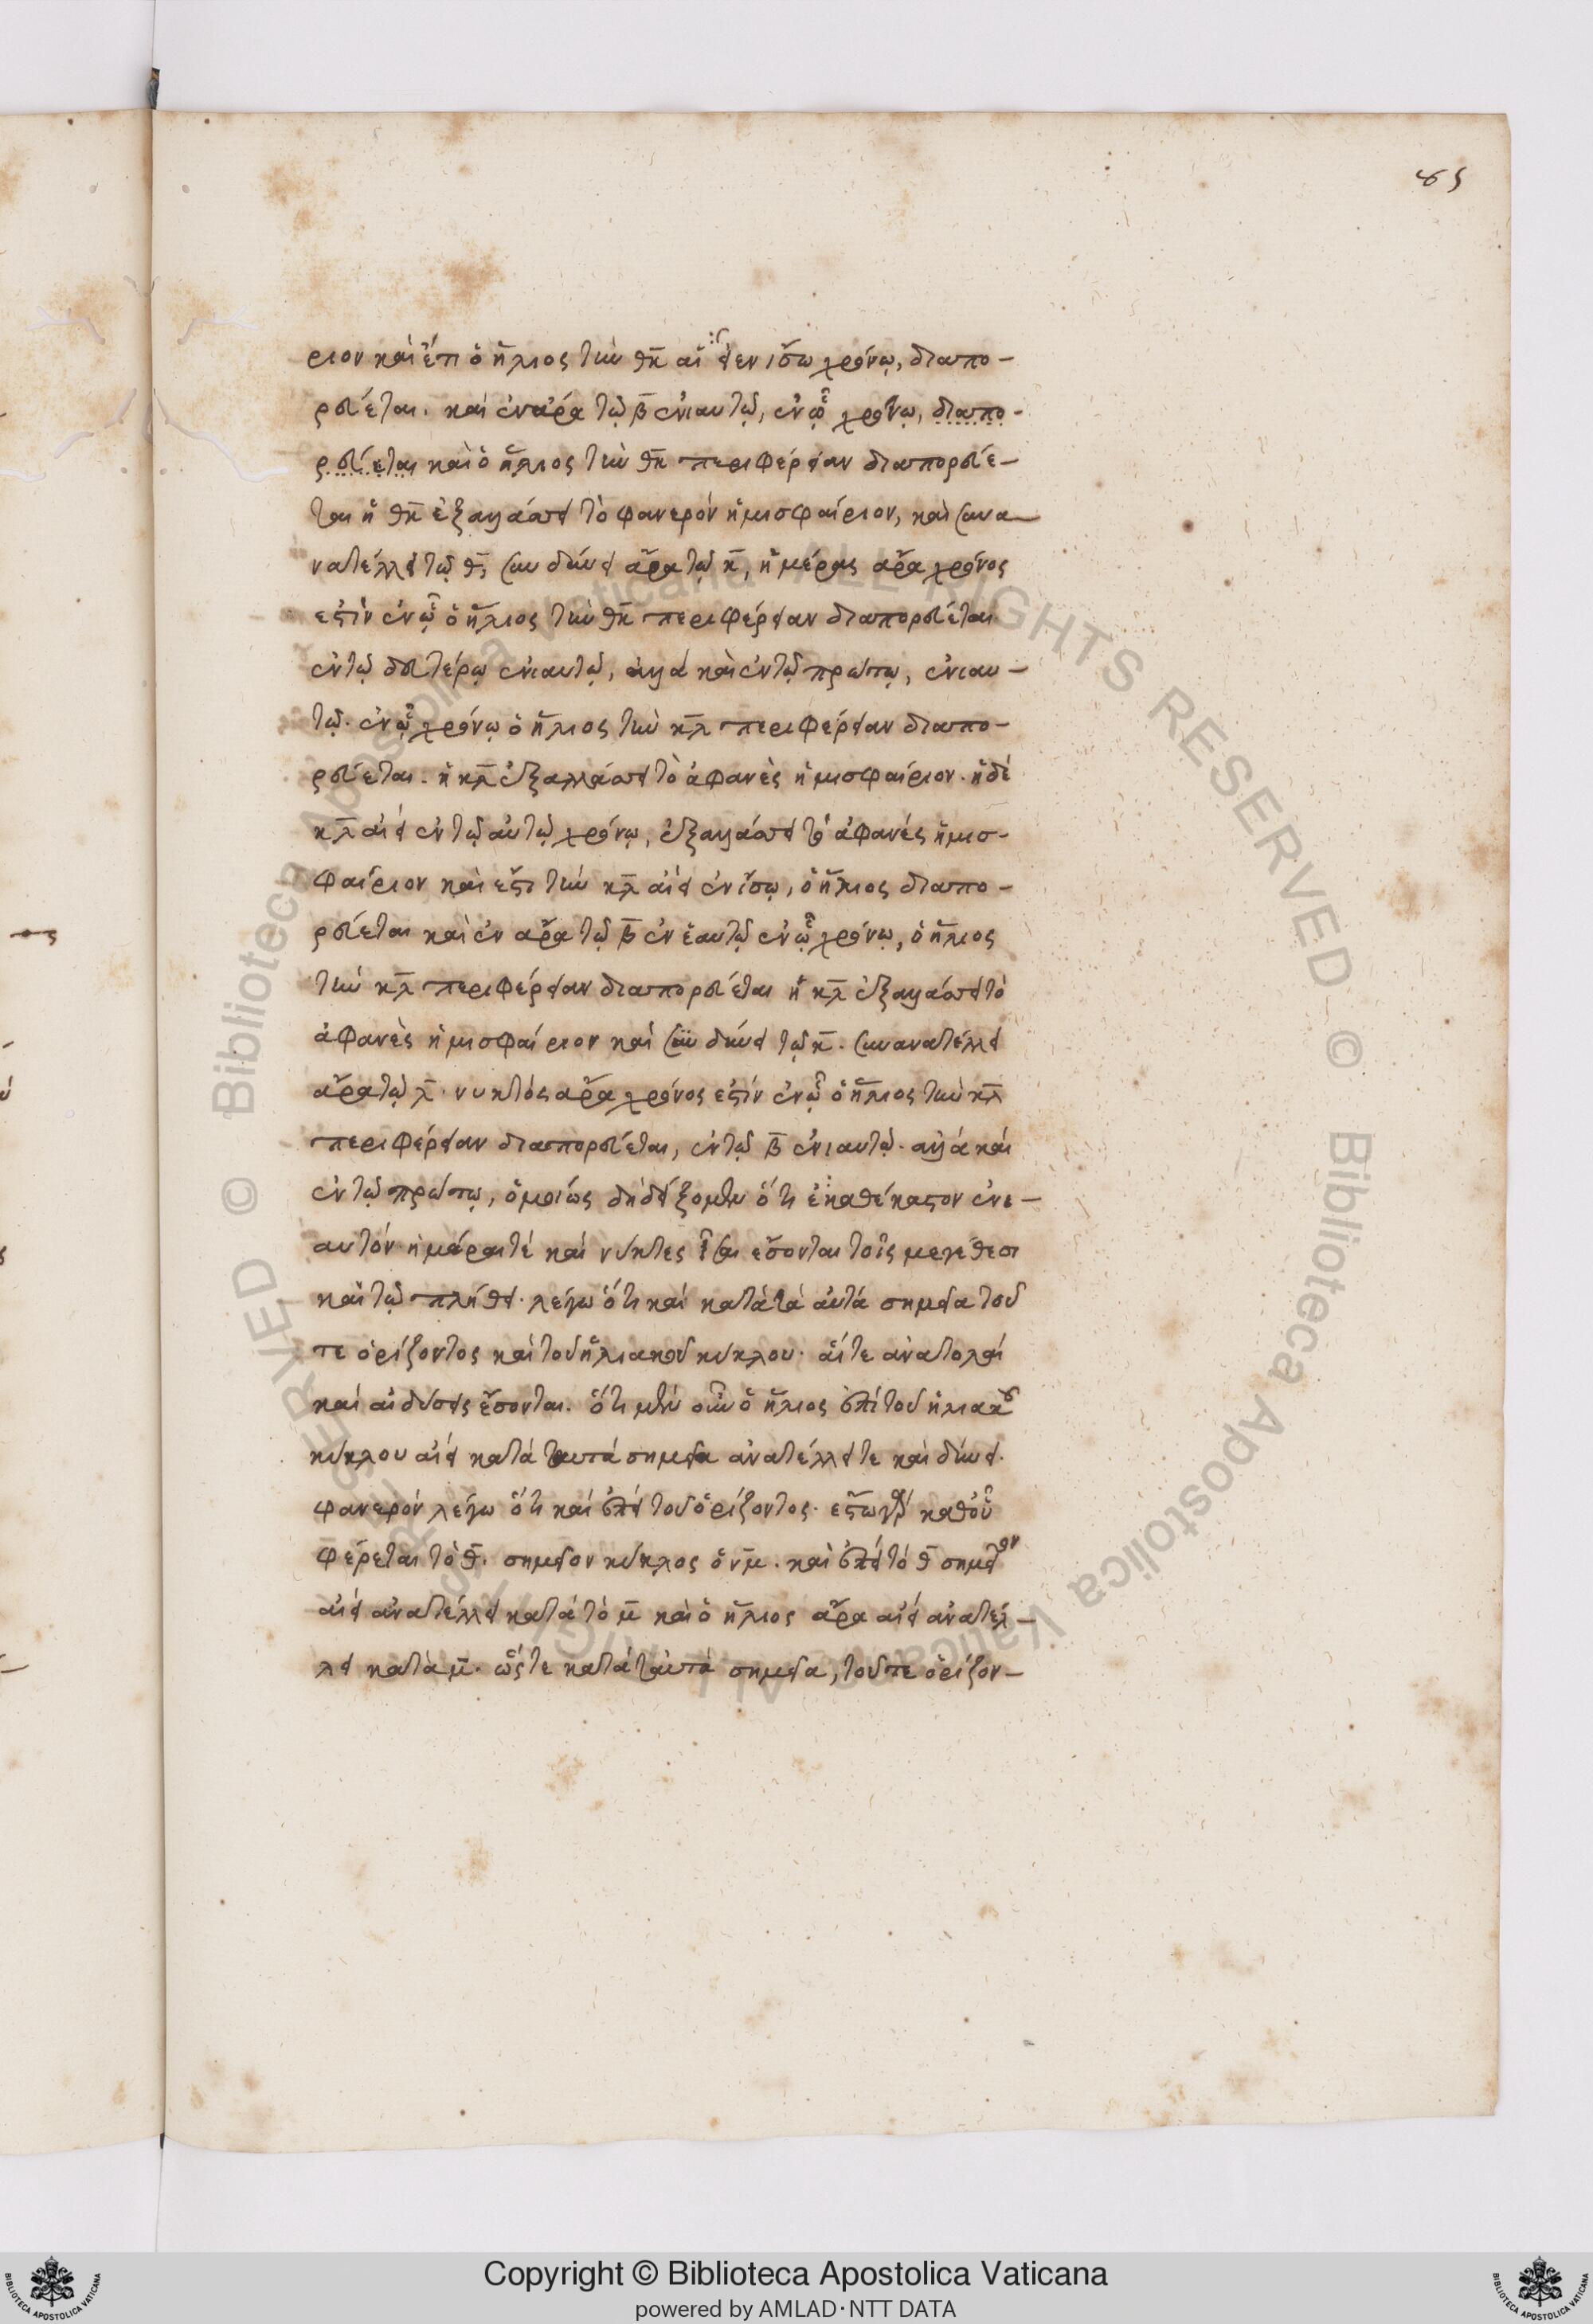 85
ριον καὶ ἔτι ὁ ἥλιος τὴν θ̅κ̅ αἰεὶ ἐν ἴσω χρόνῳ, διαπο-
ρεύεται. καὶ ἐν ἄρα τῷ β̅ ἐνιαυτῷ, ἐν ᾧ χρόνῳ, διαπο-
ρεύεται καὶ ὁ ἥλιος τὴν θ̅κ̅ περιφέρειαν διαπορεύε-
ται ἡ θ̅κ̅ ἐξαλλάσσει τὸ φανερόν ἡμισφαίριον, καὶ συνα-
νατέλλει τῷ θ̅, συνδύνει ἄρα τῷ κ̅, ἡμέρας ἄρα χρόνος
ἐστὶν ἐν ᾧ ὁ ἥλιος τὴν θ̅κ̅ περιφέρειαν διαπορεύεται
ἐν τῷ δευτέρῳ ἐνιαυτῷ, ἀλλά καὶ ἐν τῷ πρώτῳ, ἐνιαυ-
τῷ. ἐν ᾧ χρόνῳ ὁ ἥλιος τὴν κ̅λ̅ περιφέρειαν διαπο-
ρεύεται. ἡ κ̅λ̅ ἐξαλλάσσει τὸ ἀφανὲς ἡμισφαίριον. ἡ δὲ
κ̅λ̅ αἰεὶ ἐν τῷ αὐτῷ χρόνῳ, ἐξαλλάσσει τὸ ἀφανές ἡμισ-
φαίριον καὶ ἔτι τὴν κ̅λ̅ αἰεὶ ἐν ἴσῳ, ὁ ἥλιος διαπο-
ρεύεται καὶ ἐν ἄρα τῷ β̅ ἐν ἑαυτῷ ἐν ᾧ χρόνῳ, ὁ ἥλιος
τὴν κ̅λ̅ περιφέρειαν διαπορεύεται ἡ κ̅λ̅ ἐξαλλάσσει τὸ
ἀφανὲς ἡμισφαίριον καὶ συνδύνει τῷ κ̅. συνανατέλλει
ἄρα τῷ λ̅. νυκτὸς ἄρα χρόνος ἐστίν ἐν ᾧ ὁ ἥλιος τὴν κ̅λ̅
περιφέρειαν διαπορεύεται, ἐν τῷ β̅ ἐνιαυτῷ. ἀλλά καὶ
ἐν τῷ πρώτῳ, ὁμοίως δὴ δείξομεν ὅτι ἐκαθέκαστον ἐνι-
αυτόν ἡμέραι τέ καὶ νύκτες ἴσαι ἔσονται τοῖς μεγέθεσι
καὶ τῷ πλήθει. λέγω ὅτι καὶ κατὰ τὰ αὐτὰ σημεῖα τοῦ
τε ὁρίζοντος καὶ τοῦ ἡλιακοῦ κύκλου. αἵ τε ἀνατολαί
καὶ αἱ δύσεις ἔσονται. ὅτι μὲν οὖν ὁ ἥλιος ἐπὶ τοῦ ἡλιακοῦ
κύκλου αἰεὶ κατὰ ταυτά σημεῖα ἀνατέλλει τε καὶ δύνει.
φανερόν λέγω ὅτι καὶ ἐπὶ τοῦ ὁρίζοντος. ἔστω γὰρ καθ' οὗ
φέρεται τὸ θ̅. σημεῖον κύκλος ὁ ν̅μ̅. καὶ ἐπεὶ τὸ θ̅ σημεῖον
αἰεὶ ἀνατέλλει κατὰ τὸ μ̅ καὶ ὁ ἥλιος ἄρα αἰεὶ ἀνατέλ-
λει κατὰ μ̅. ὥστε κατὰ ταὐτὰ σημεῖα, τοῦ τε ὁρίζον-
Copyright © Biblioteca Apostolica Vaticana
powered by AMLAD·NTT DATA